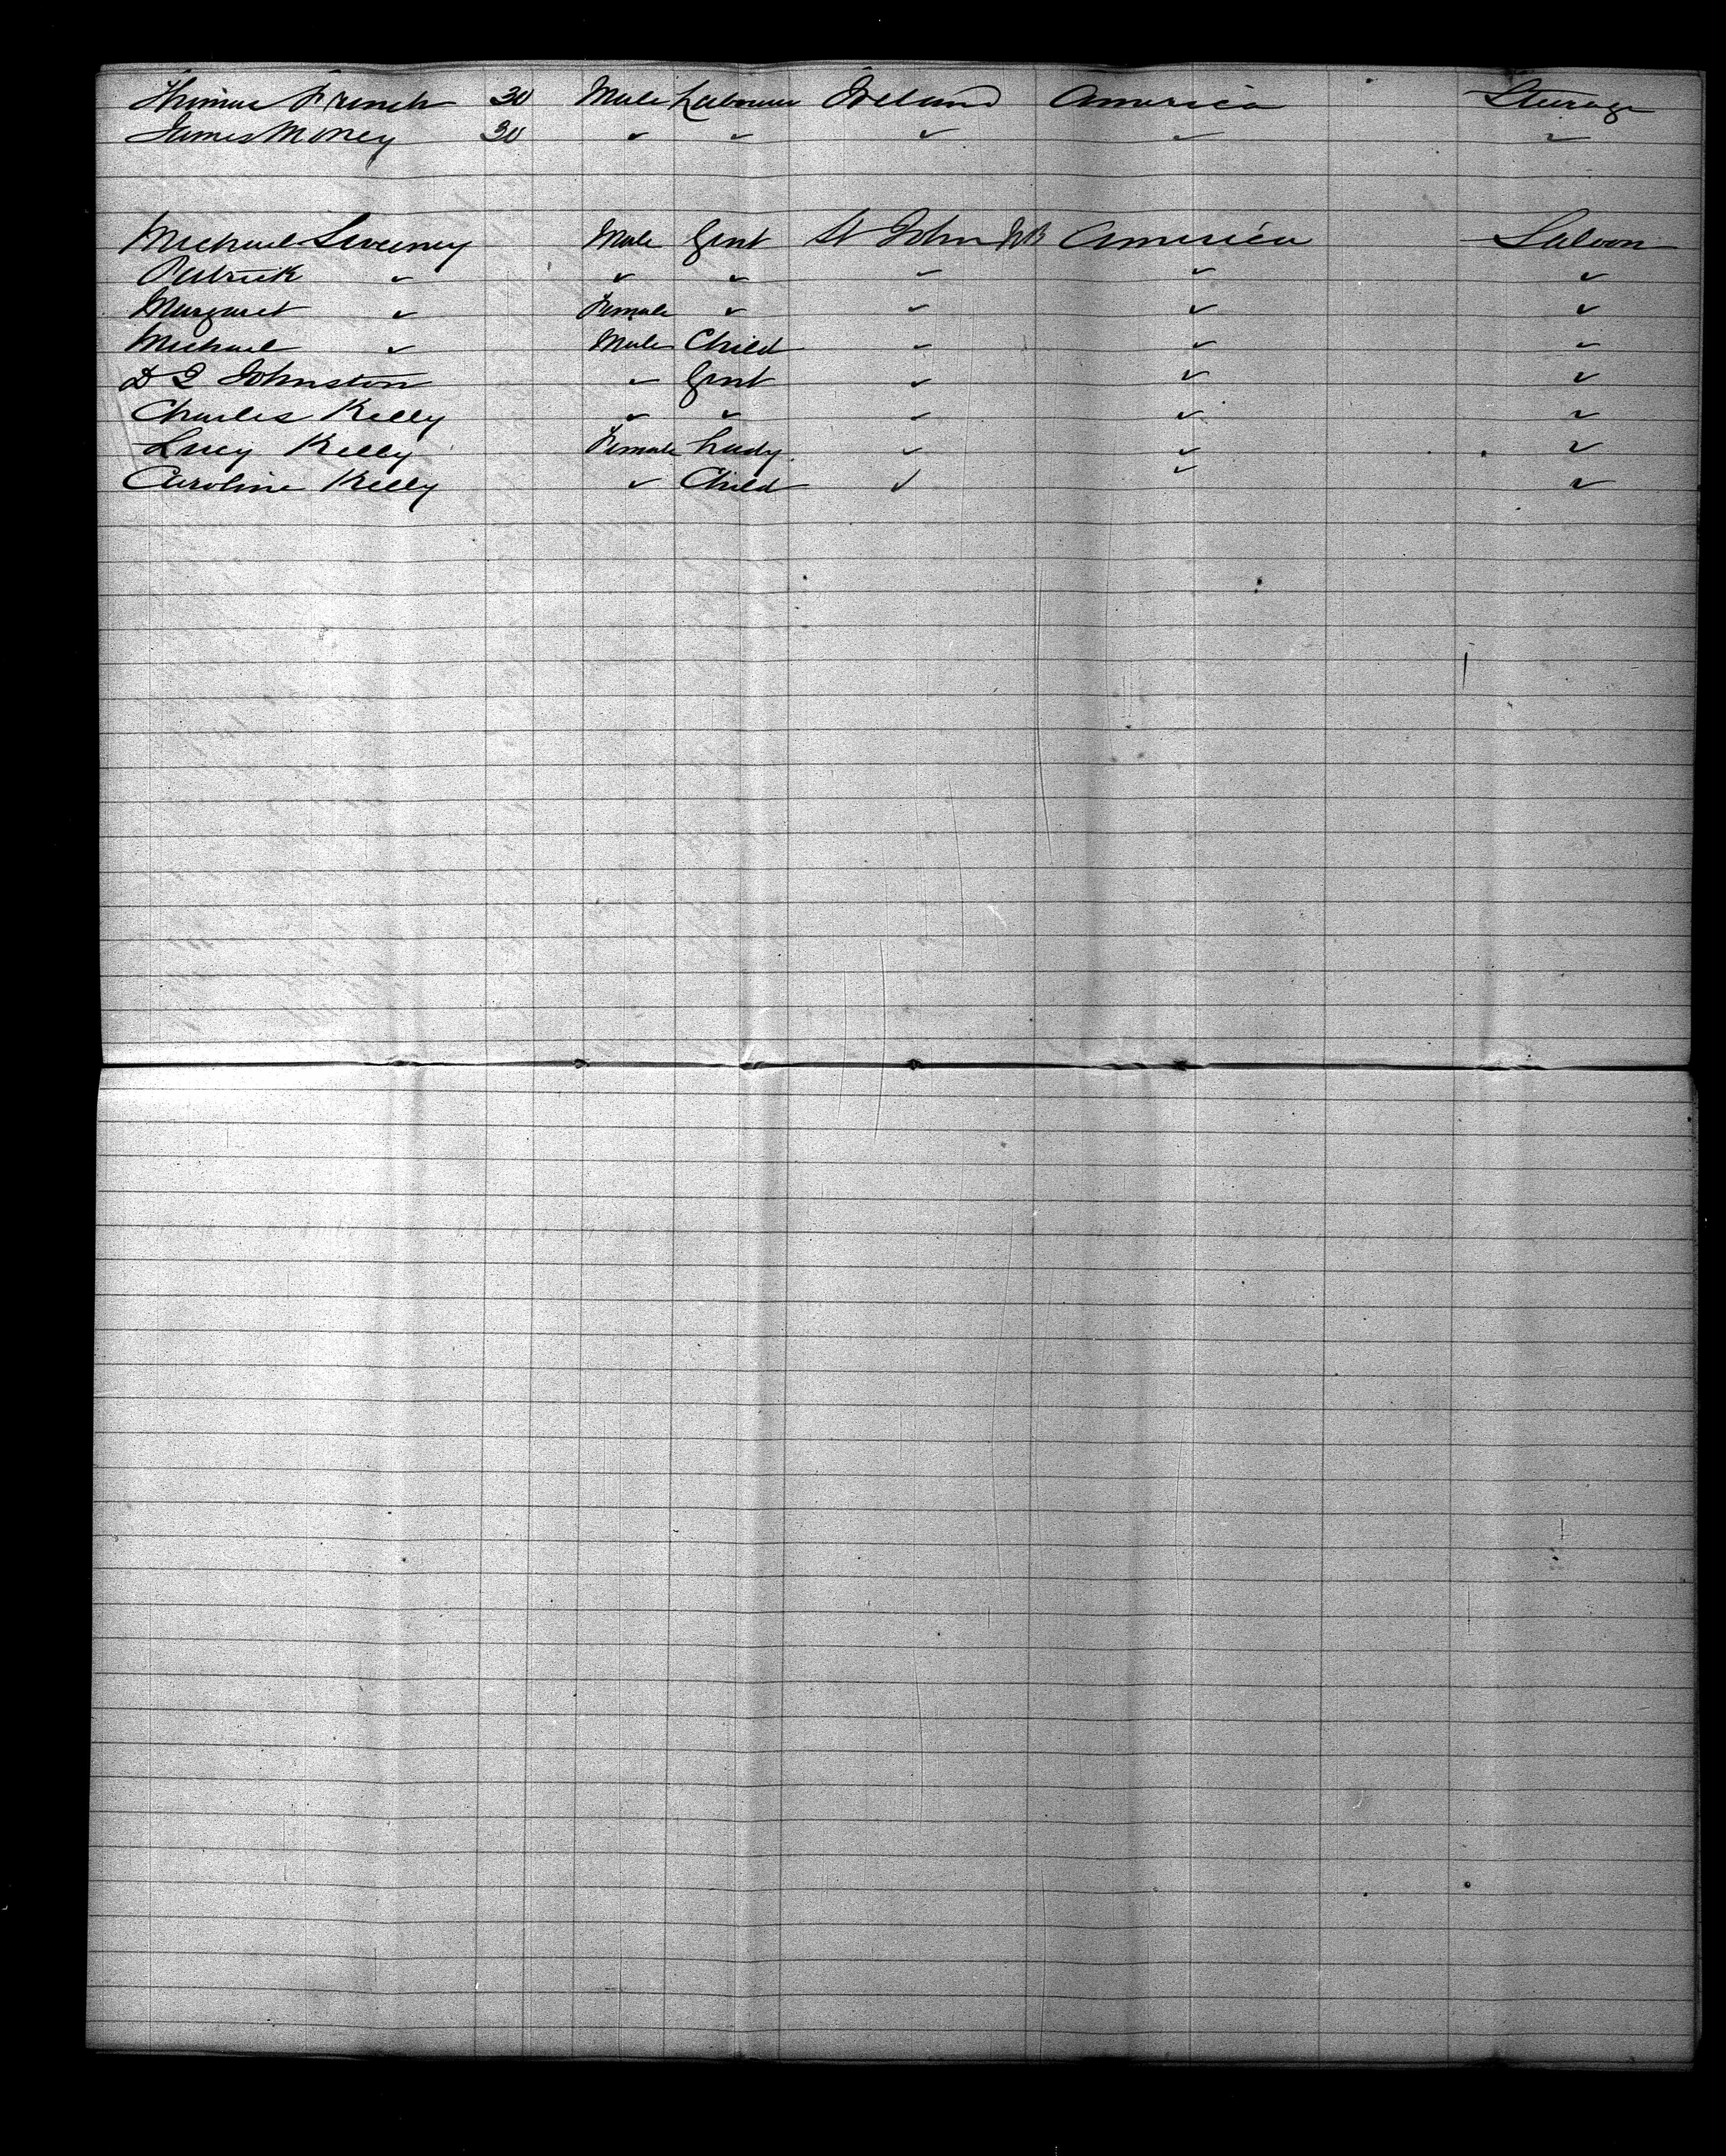 Thomas French 30 Male Labourer Ireland America Steerage
James Money 30 " " " " "
Michael Sweeney Male Gent St John NB America Saloon
Patrick " " " " " "
Margaret " Female " " " "
Michael " Male Child " " "
Johnston " Gent " " "
Charles Kelly " " " " "
Lucy Kelly Female Lady " " "
Caroline Kelly " Child " " "